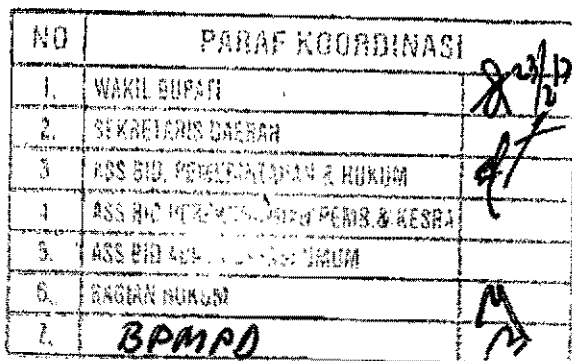 NO PARAF KOORDINASI
1. WAKIL BUPATI 23/2 17
2. SEKRETARIS DAERAH
3 ASS BID. PEMERINTAHAN & HUKUM
4 ASS BID PEMB.& KESRA
5. ASS BID UMUM
6. BAGIAN HUKUM
7. BPMPD